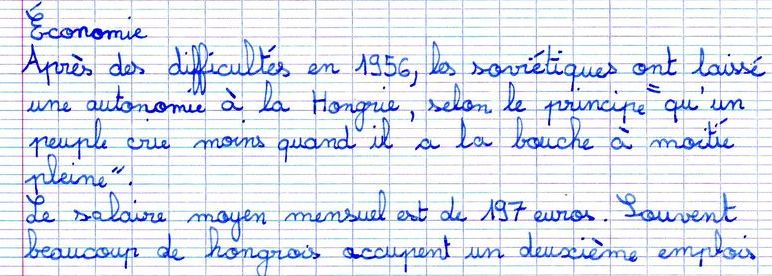 Économie
Après des difficultés en 1956, les soviétiques ont laissé
une autonomie à la Hongrie, selon le principe "qu'un
peuple crie moins quand il a la bouche à moitié
pleine".
Le salaire moyen mensuel est de 197 euros. Souvent
beaucoup de hongrois occupent un deuxième emplois